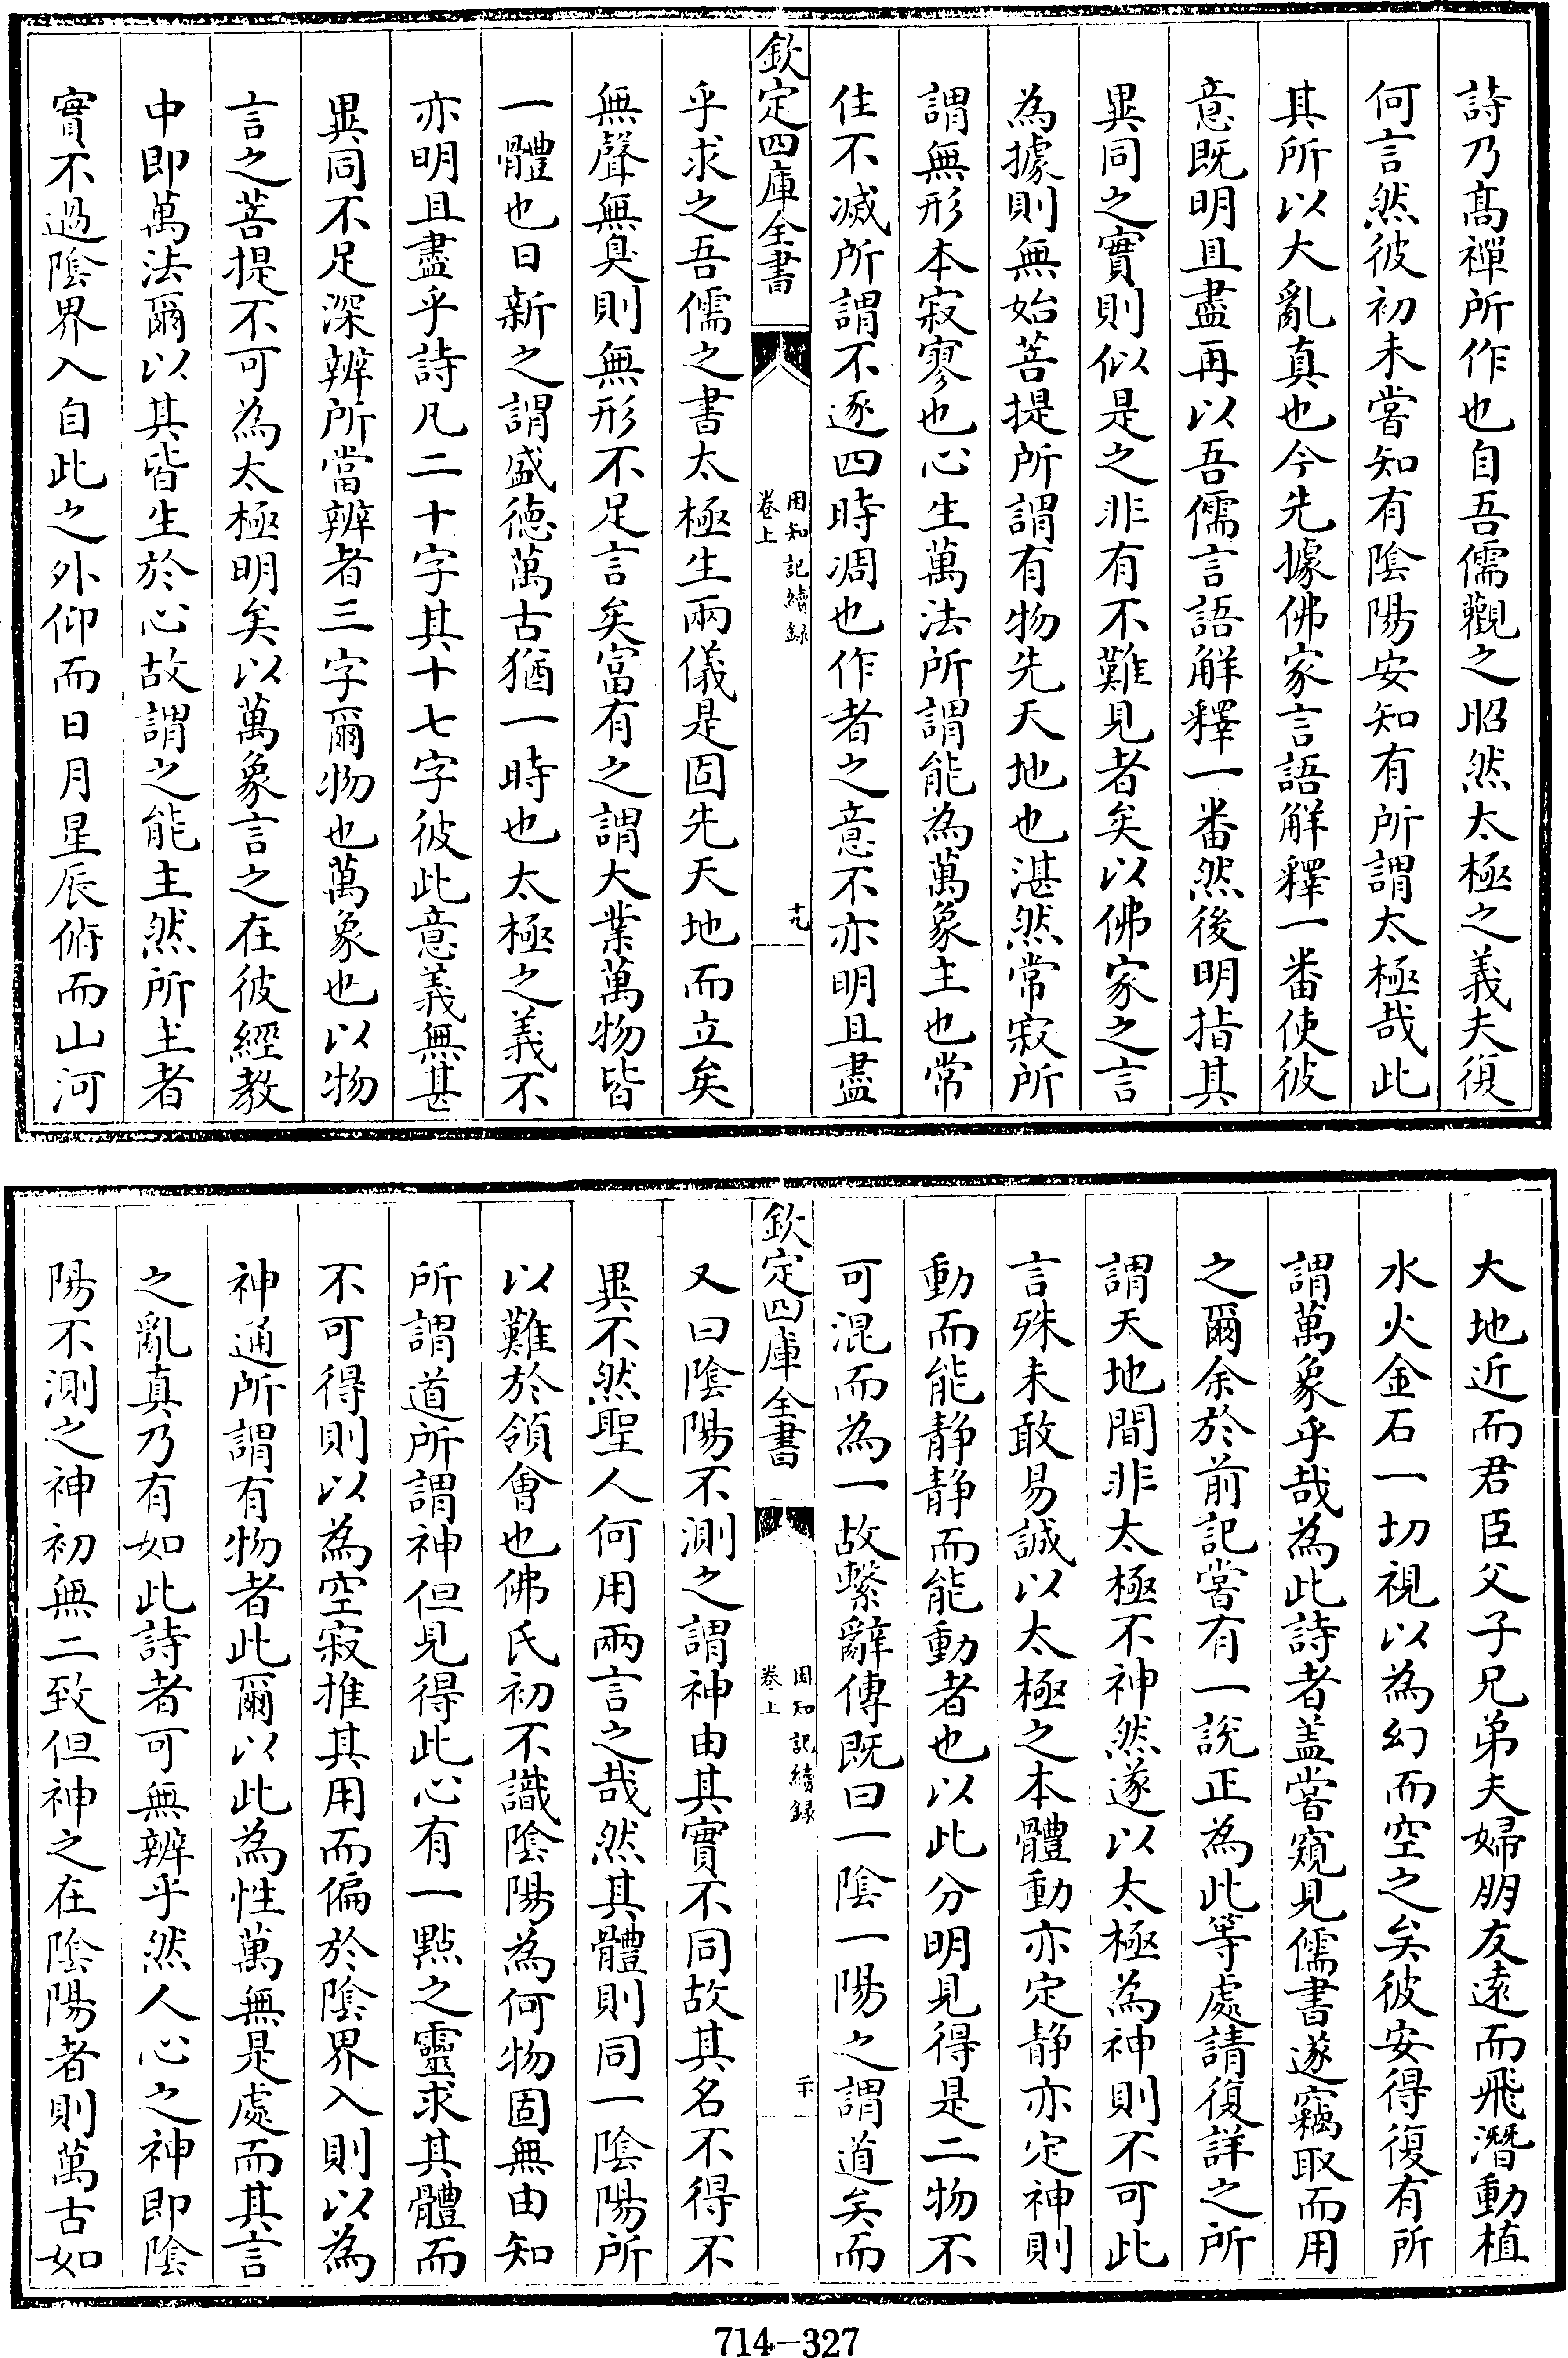 詩乃髙禪所作也自吾儒觀之昭然太極之義夫復
何言然彼初未嘗知有陰陽安知有所謂太極哉此
其所以大亂真也今先據佛家言語解釋一番使彼
意既明且盡再以吾儒言語解釋一番然後明指其
異同之實則似是之非有不難見者矣以佛家之言
為據則無始菩提所謂有物先天地也湛然常寂所
謂無形本寂寥也心生萬法所謂能為萬象主也常
住不滅所謂不逐四時凋也作者之意不亦明且盡
欽定四庫全書
困知記續録
卷上
十九
乎求之吾儒之書太極生兩儀是固先天地而立矣
無聲無臭則無形不足言矣富有之謂大業萬物皆
一體也日新之謂盛德萬古猶一時也太極之義不
亦明且盡乎詩凡二十字其十七字彼此意義無甚
異同不足深辨所當辨者三字爾物也萬象也以物
言之菩提不可為太極明矣以萬象言之在彼經教
中即萬法爾以其皆生於心故謂之能主然所主者
實不過陰界入自此之外仰而日月星辰俯而山河
大地近而君臣父子兄弟夫婦朋友遠而飛潛動植
水火金石一切視以為幻而空之矣彼安得復有所
謂萬象乎哉為此詩者盖嘗窺見儒書遂竊取而用
之爾余於前記嘗有一說正為此等處請復詳之所
謂天地間非太極不神然遂以太極為神則不可此
言殊未敢易誠以太極之本體動亦定静亦定神則
動而能静静而能動者也以此分明見得是二物不
可混而為一故繫辭傳既曰一陰一陽之謂道矣而
欽定四庫全書
困知記續録
卷上
二十
又曰陰陽不測之謂神由其實不同故其名不得不
異不然聖人何用兩言之哉然其體則同一陰陽所
以難於領會也佛氏初不識陰陽為何物固無由知
所謂道所謂神但見得此心有一㸃之靈求其體而
不可得則以為空寂推其用而偏於陰界入則以為
神通所謂有物者此爾以此為性萬無是處而其言
之亂真乃有如此詩者可無辨乎然人心之神即陰
陽不測之神初無二致但神之在陰陽者則萬古如
714-327